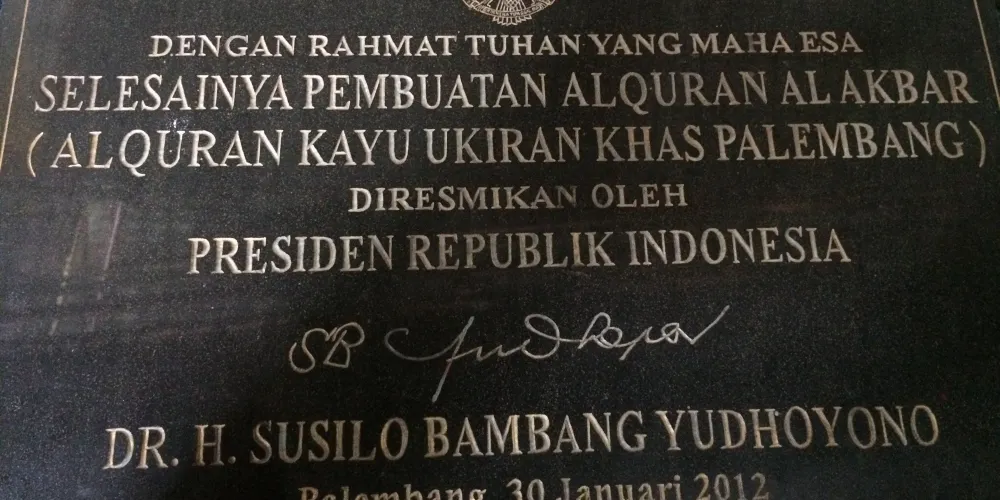 DENGAN RAHMAT TUHAN YANG MAHA ESA
SELESAINYA PEMBUATAN ALQURAN AL AKBAR
( ALQURAN KAYU UKIRAN KHAS PALEMBANG )
DIRESMIKAN OLEH
PRESIDEN REPUBLIK INDONESIA
DR. H. SUSILO BAMBANG YUDHOYONO
Palembang, 30 Januari 2012